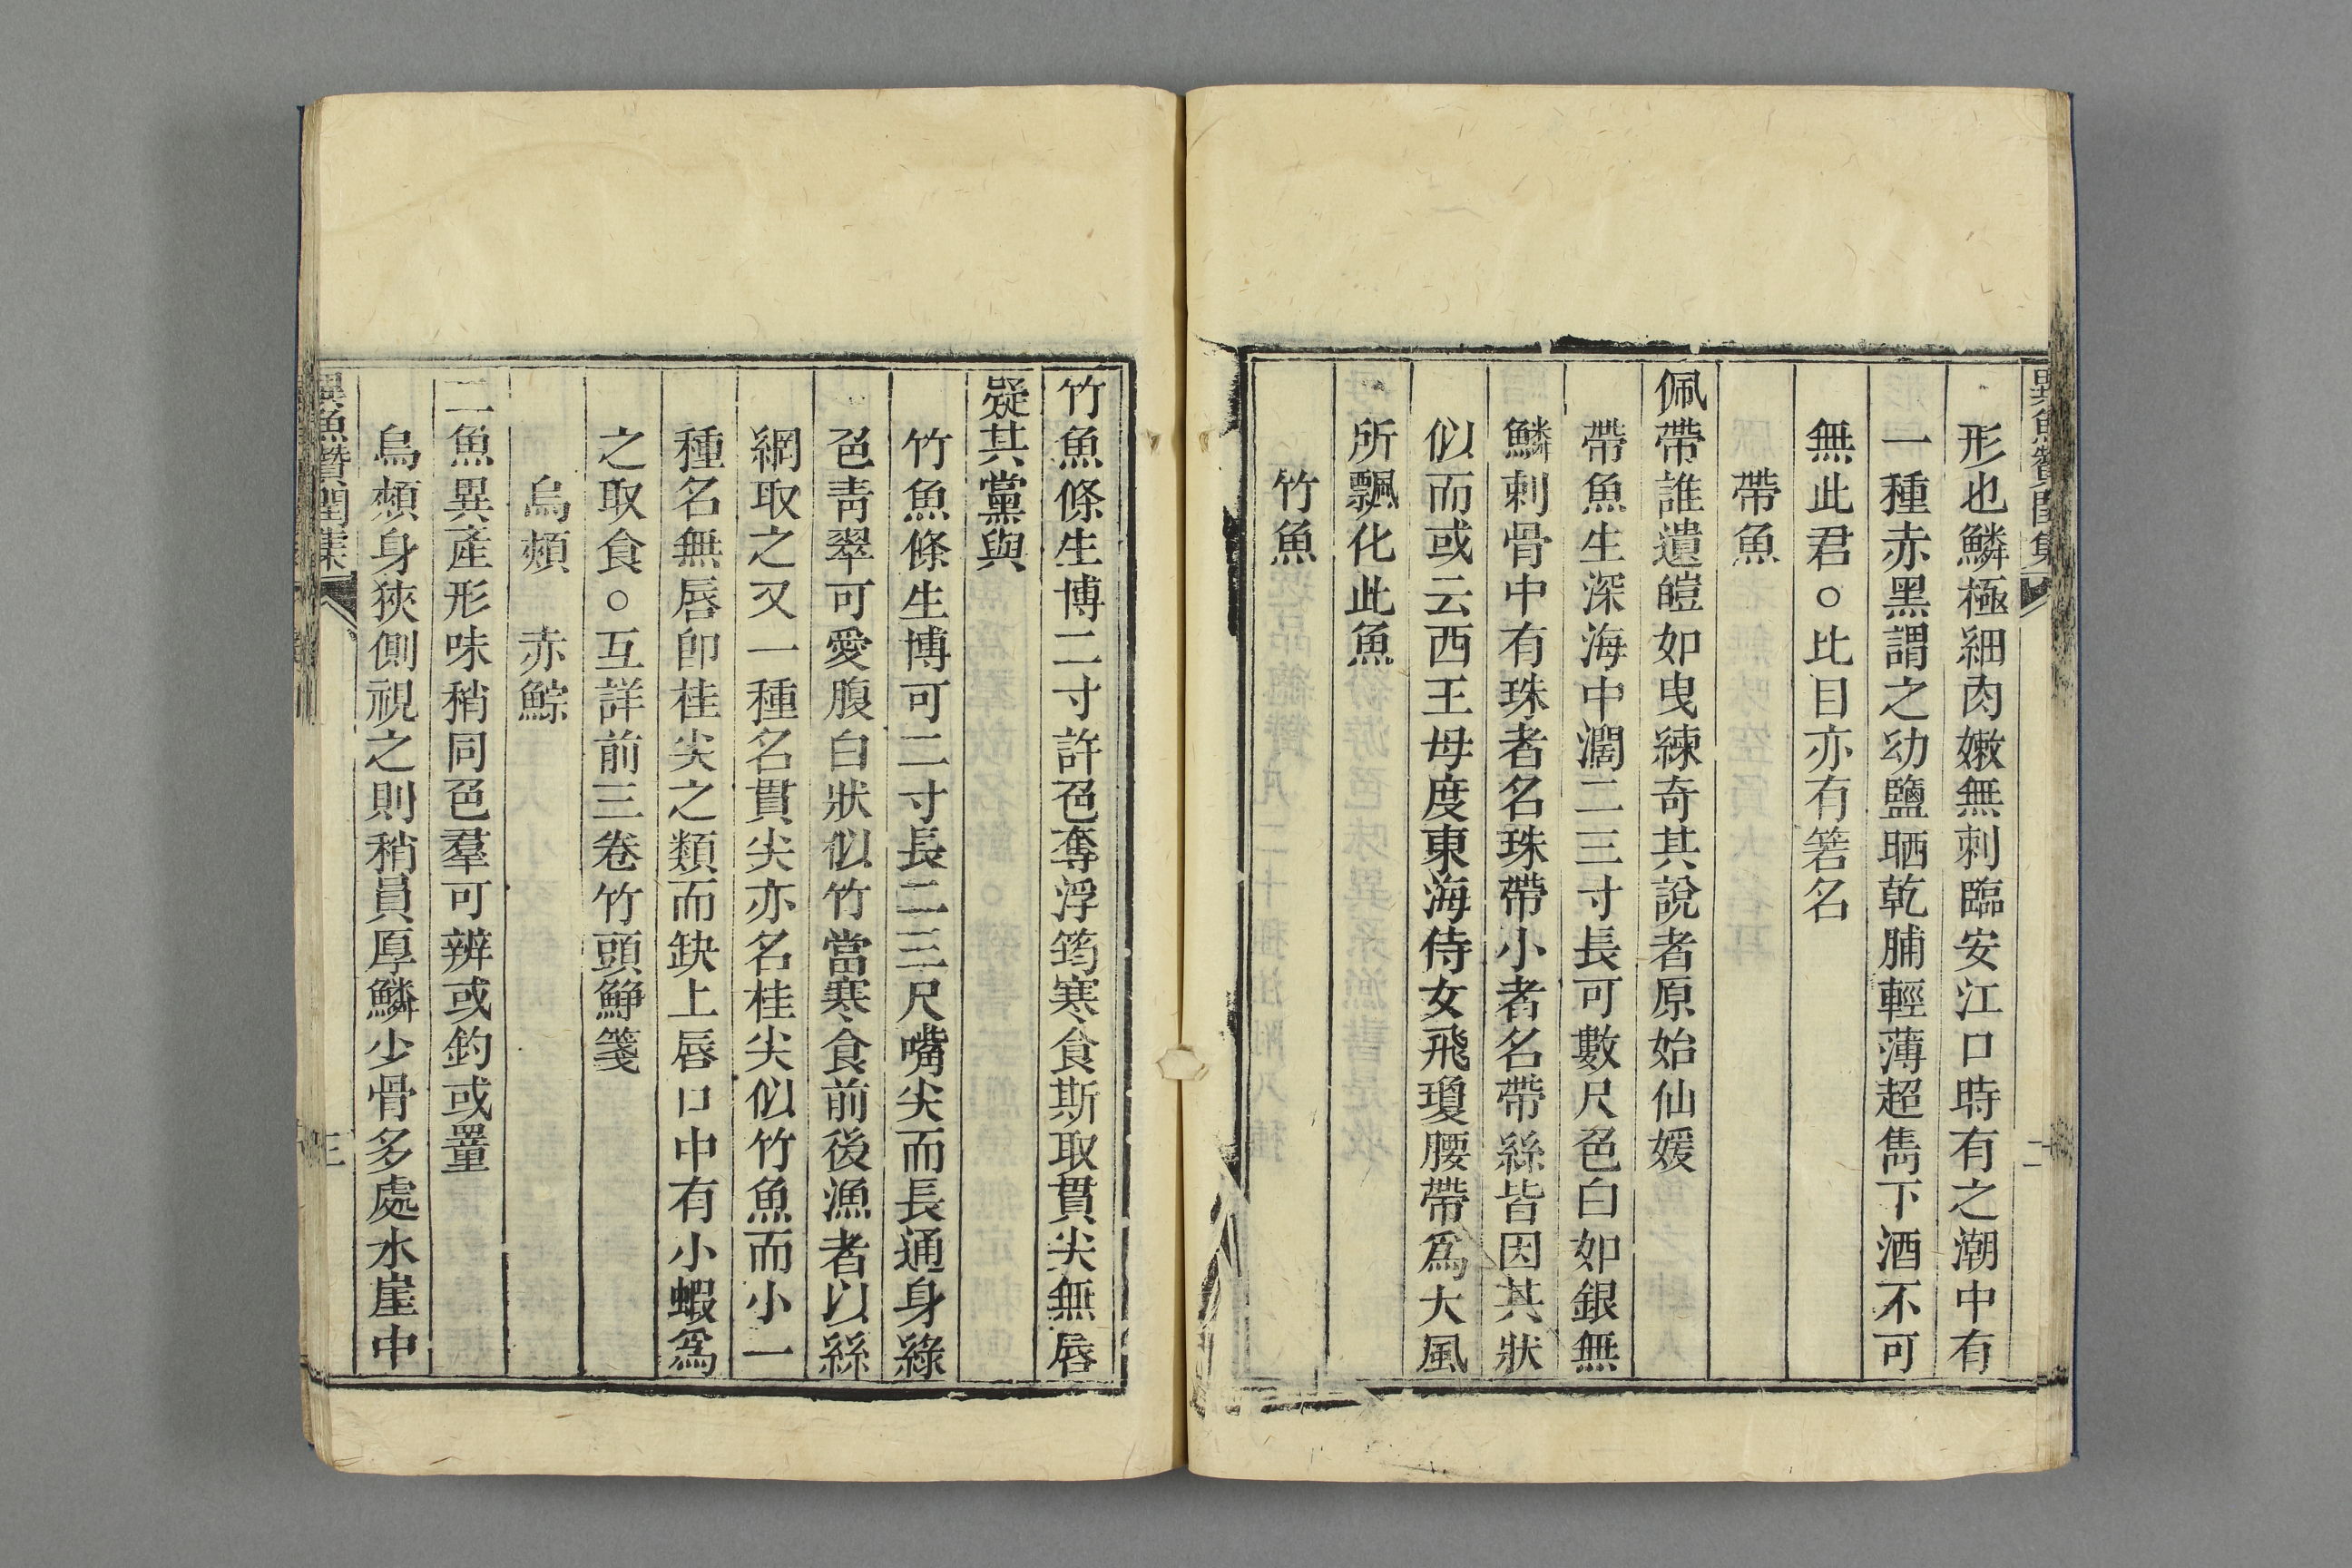 異魚贊閏集
形也鱗極細肉嫩無刺臨安江口時有之潮中有
一種赤黑謂之幼鹽晒乾脯輕薄超雋下酒不可
無此君○比目亦有箬名
帶魚
佩帶誰遺皚如曳練奇其說者原始仙媛
帶魚生深海中濶二三寸長可數尺色白如銀無
鱗刺骨中有珠者名珠帶小者名帶絲皆因其狀
似而或云西王母度東海侍女飛瓊腰帶爲大風
所飄化此魚
竹魚
竹魚條生博二寸許色奪浮筠寒食斯取貫尖無唇
疑其黨與
竹魚條生博可二寸長二三尺嘴尖而長通身綠
色靑翠可愛腹白狀似竹當寒食前後漁者以絲
網取之又一種名貫尖亦名桂尖似竹魚而小一
種名無唇卽桂尖之類而缺上唇口中有小蝦爲
之取食○互詳前三卷竹頭䱢箋
烏頰 赤鯮
二魚異產形味稍同色羣可辨或釣或罿
烏頰身狹側視之則稍員厚鱗少骨多處水崖中
異魚贊閏集
三